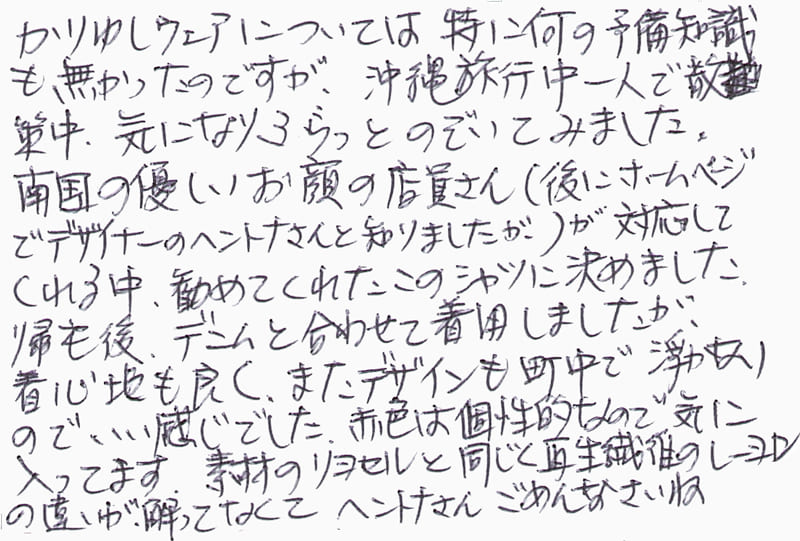 かりゆしウェアについては 特に何の予備知識
も無かったのですが、沖縄旅行中一人で散
策中、気になりふらっとのぞいてみました。
南国の優しいお顔の店員さん(後にホームページ
でデザイナーのヘントナさんと知りましたが、)が 対応して
くれる中、勧めてくれたこのシャツに決めました、
帰宅後、デニムと合わせて着用しましたが、
着心地も良く、またデザインも町中で浮かない
ので、いい感じでした、赤色は個性的なので気に
入ってます、素材のリヨセルと同じく再生繊維のレーヨン
の違いが、解ってなくて ヘントナさん ごめんなさいね